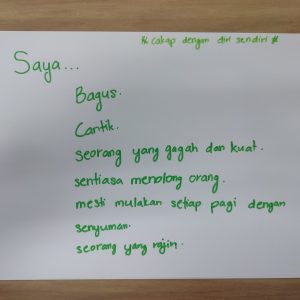 * cakap dengan diri sendiri *
Saya...
Bagus.
Cantik.
seorang yang gagah dan kuat.
sentiasa menolong orang.
mesti mulakan setiap pagi dengan
senyuman.
seorang yang rajin.